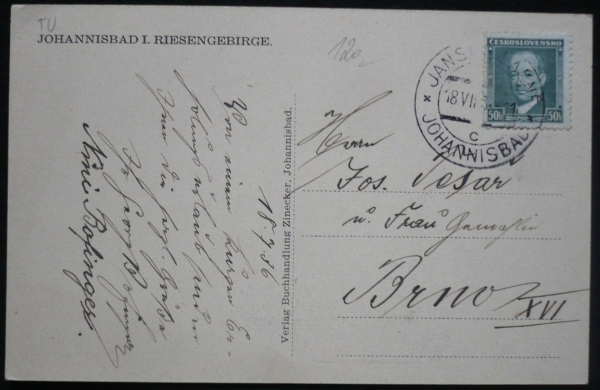 TU
JOHANNISBAD I. RIESENGEBIRGE.
120
18.7.36
Von einem kurzen Er-
holungsurlaub senden
Ihnen die herzl. Grüße
Ihr Georg Bofinger
Mimi Bofinger.
Verlag Buchhandlung Zinecker, Johannisbad.
ČESKOSLOVENSKO
50h 50h
JANS
18.VII
C
JOHANNISBAD
Herrn
Jos. Pesar
u. Frau Gemahlin
Brno XVI